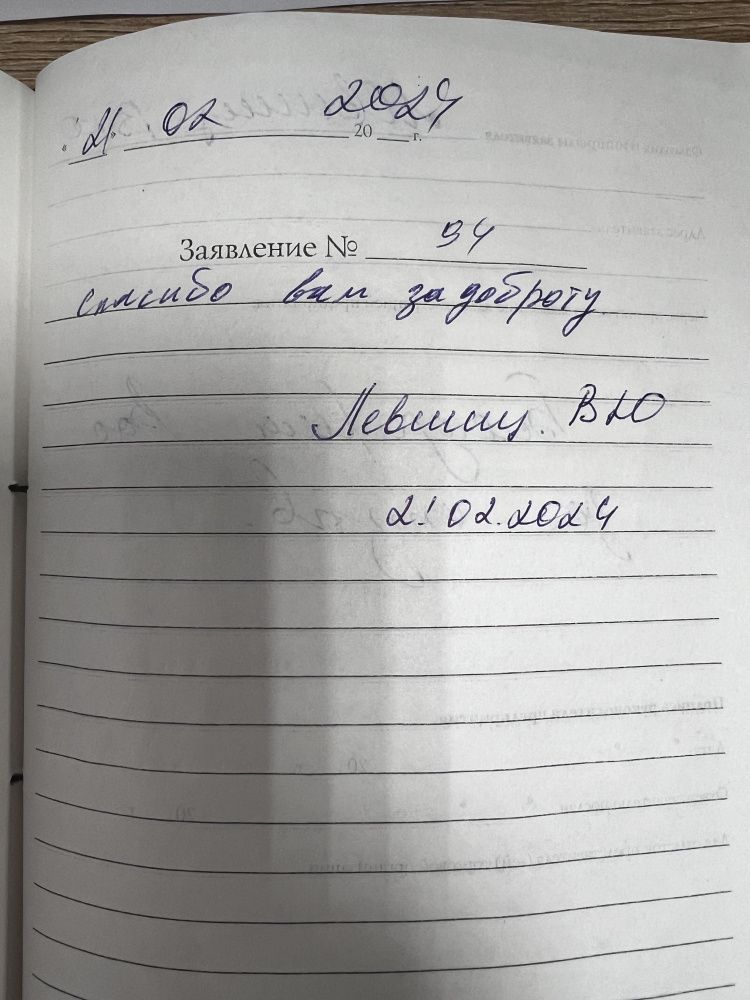 «21» 02 2024 20 г.
Заявление № 94
спасибо вам за доброту.
21.02.2024